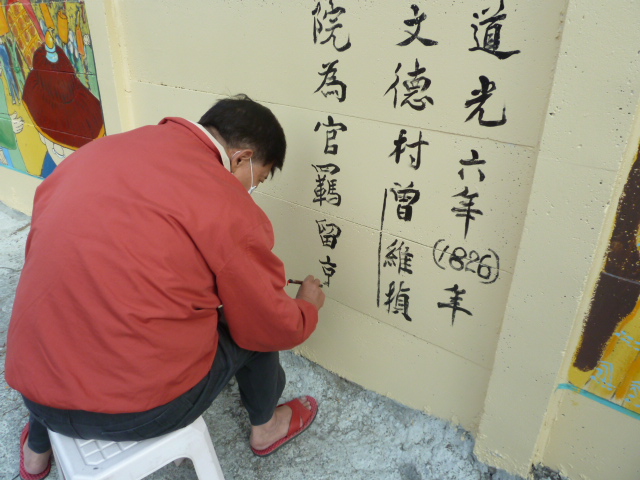 道光六年(1826)年
文德村曾維楨
院為官羈留京